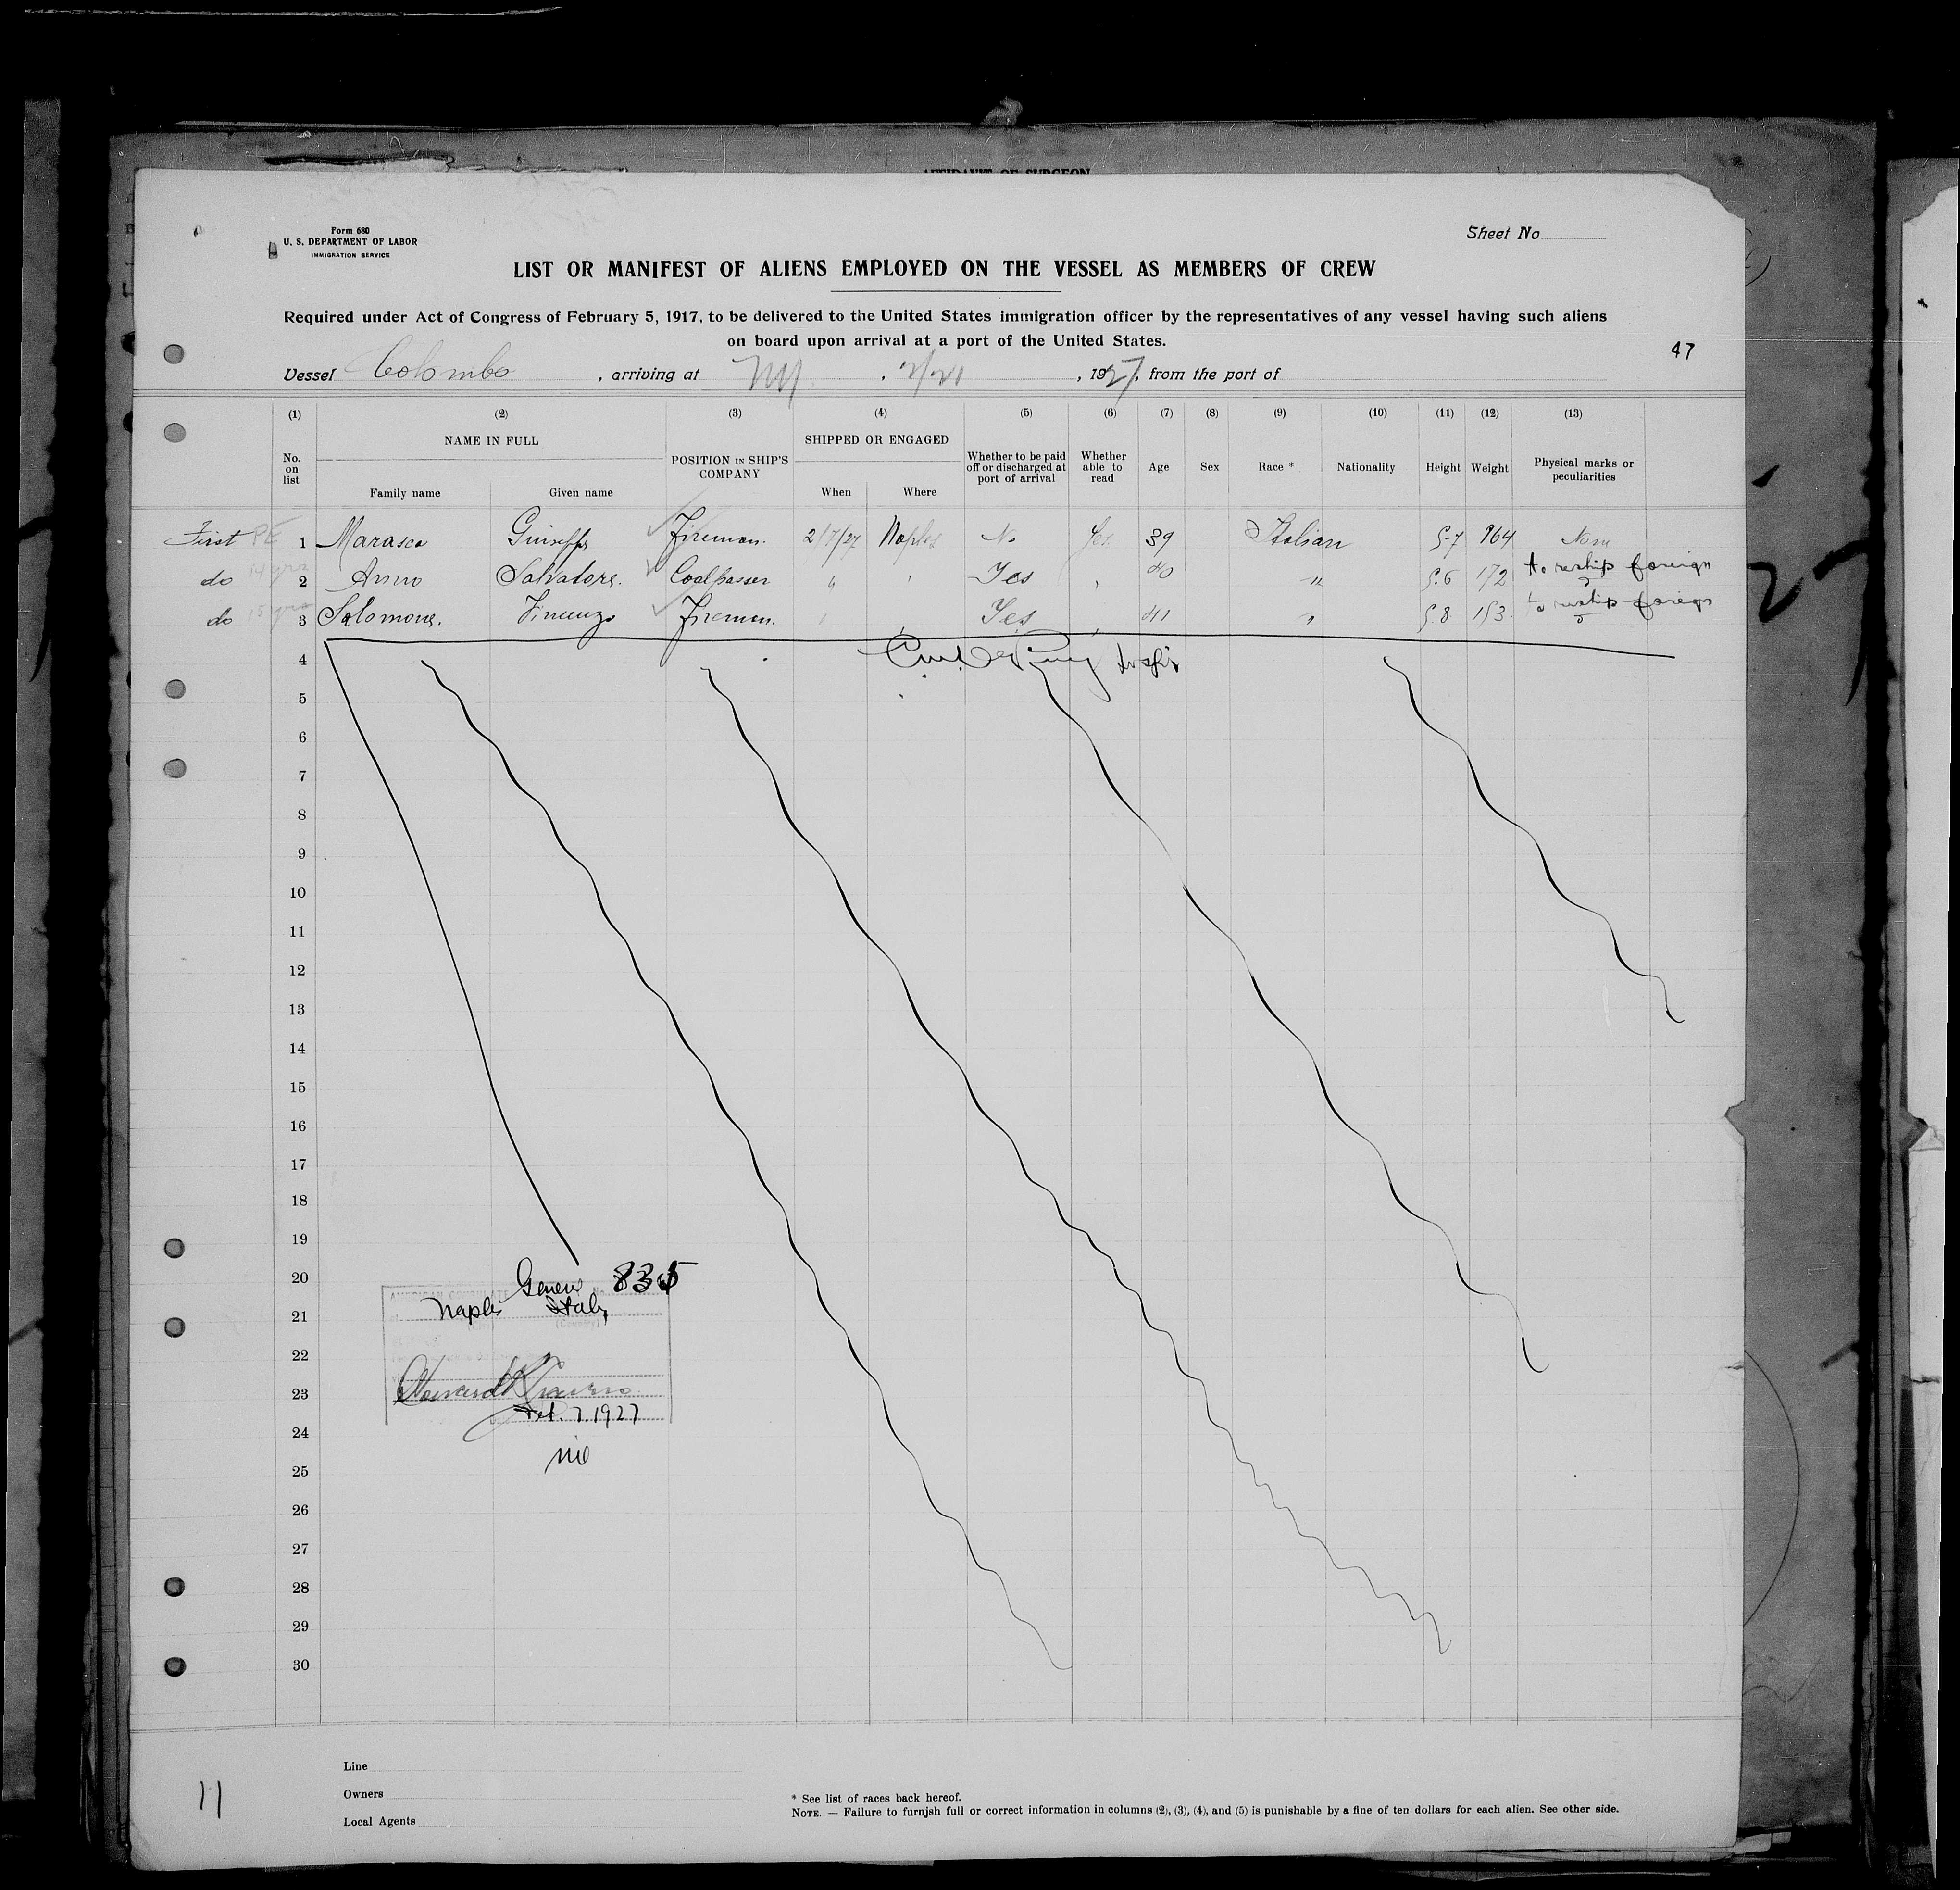 AFFIDAVIT OF SURGEON
Form 680
U. S. DEPARTMENT OF LABOR
IMMIGRATION SERVICE
Sheet No
LIST OR MANIFEST OF ALIENS EMPLOYED ON THE VESSEL AS MEMBERS OF CREW
Required under Act of Congress of February 5, 1917, to be delivered to the United States immigration officer by the representatives of any vessel having such aliens
on board upon arrival at a port of the United States.
47
Vessel Colombo , arriving at NY , 2/21 , 1927, from the port of
(1) (2) (3) (4) (5) (6) (7) (8) (9) (10) (11) (12) (13)
No. on list NAME IN FULL Family name Given name POSITION IN SHIP'S COMPANY SHIPPED OR ENGAGED When Where Whether to be paid off or discharged at port of arrival Whether able to read Age Sex Race * Nationality Height Weight Physical marks or peculiarities
First 1 Marasco Giuseppe Fireman. 2/7/27 Naples No Yes 39 Italian 5-7 164 None
do 14 yrs 2 Salvatore. Coalpasser " " Yes " 40 " 5.6 172 to reship foreign
do 15 yrs 3 Solomone. Vincenzo Fireman. " " Yes " 41 " 5.8 153 to reship foreign
4
5
6
7
8
9
10
11
12
13
14
15
16
17
18
19
20 835
21 Naples Italy
22
23
Feb. 7. 1927
24
25
26
27
28
29
30
Line
Owners
Local Agents
* See list of races back hereof.
NOTE. — Failure to furnish full or correct information in columns (2), (3), (4), and (5) is punishable by a fine of ten dollars for each alien. See other side.
11